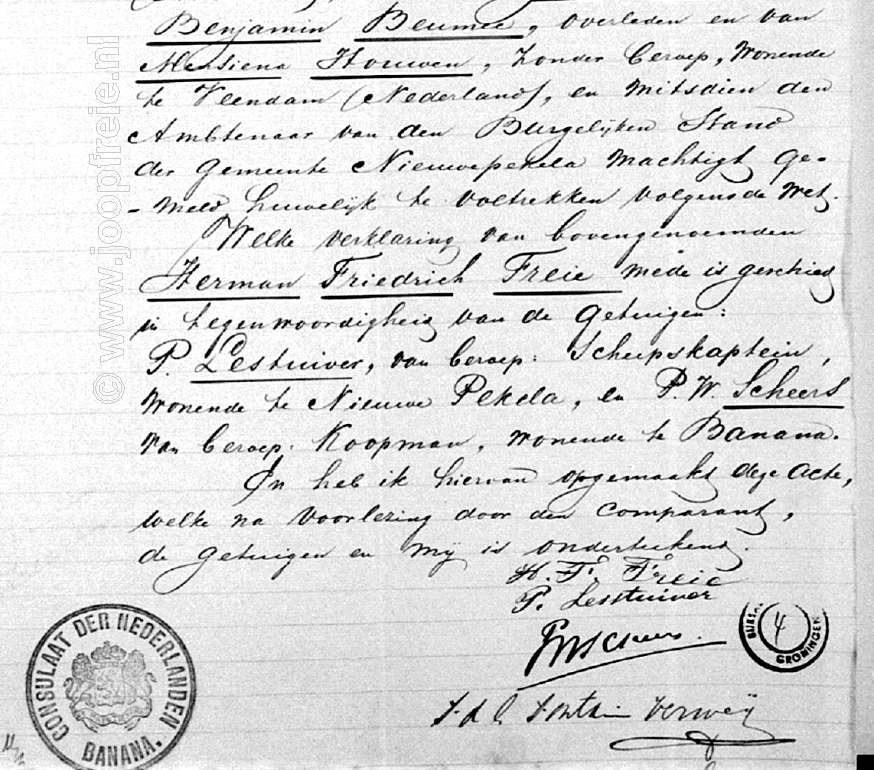 Benjamin Beumee, overleden en van
Mensiena Houwen, zonder beroep, wonende
te Veendam (Nederland), en mitsdien den
Ambtenaar van den Burgelijken Stand
der gemeente Nieuwepekela machtigt ge-
- meld huwelijk te voltrekken volgens de Wet.
Welke verklaring van bovengenoemden
Herman Friedrich Freie mede is geschied
in tegenwoordigheid van de getuigen:
P. Lestuiver, van beroep: Scheepskaptein,
wonende te Nieuwe Pekela, en P. W. Scheers
van beroep: Koopman, wonende te Banana.
En heb ik hiervan opgemaakt deze acte,
welke na voorlezing door den comparant,
de getuigen en mij is onderteekend.
H. F. Freie
P. Lesstuiver
PWScheers
Fontein Verweij
CONSULAAT DER NEDERLANDEN
BANANA.
4
GRONINGEN
© www.joopfreie.nl